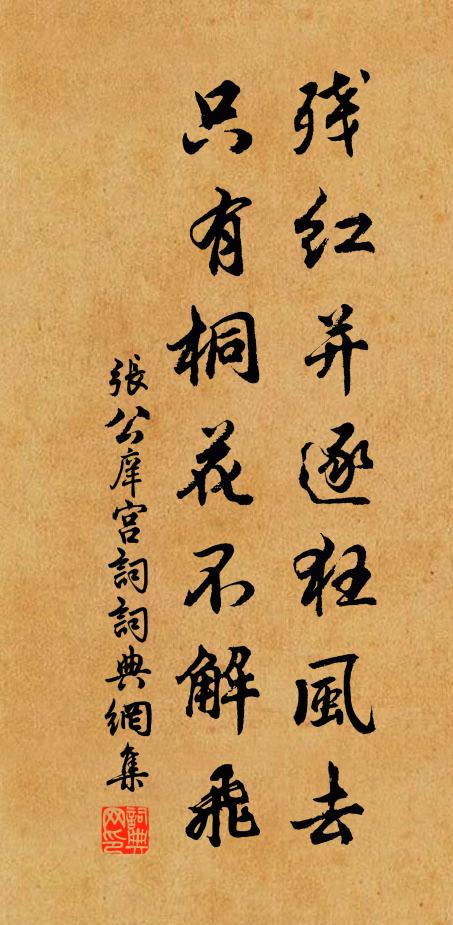 残红并逐狂風去
只有桐花不解飛
張公庠宫詞詞典網集
詞典
网印